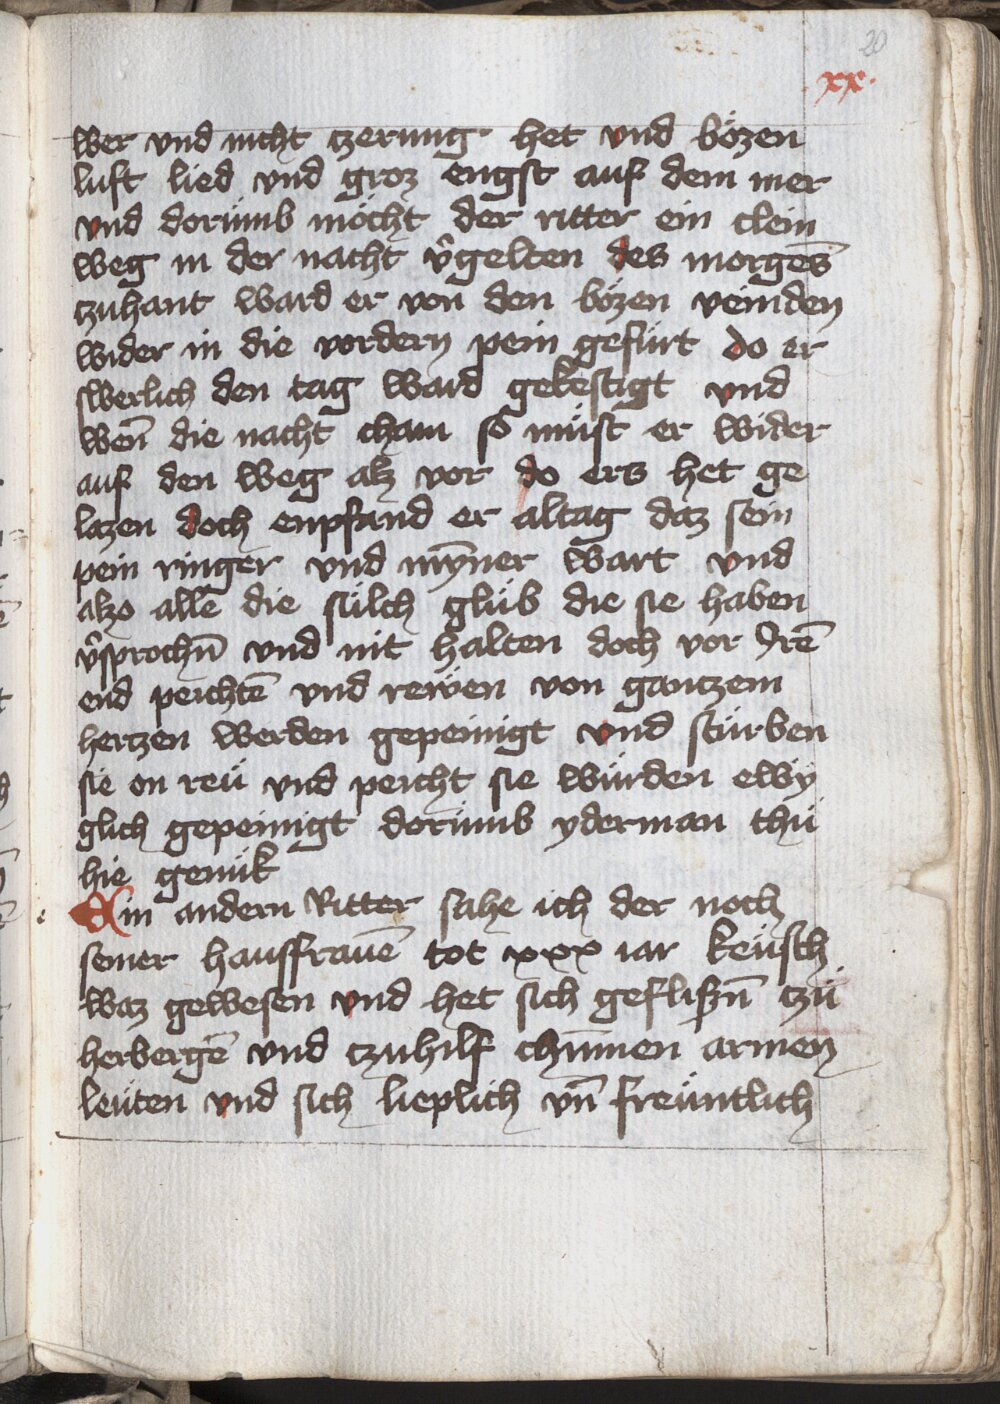 20
xx.
wer vnd nicht tzerung het vnd bözen
luft lied vnd groz engst auf dem mer
vnd dorümb möcht der ritter ein clein
weg in der nacht v̂gelten des morgēs
tzuhant ward er von den bözen veinden
wider in die vordern pein gefürt do er
swerlich den tag ward gekestigt vnd
wen̄ die nacht cham so müst er wider
auf den weg alz vor do ers het ge
lazen doch enpfand er altag daz sein
pein ringer vnd mȳner wart vnd
alzo alle die sülch glüb die sie haben
v̂sprochn̄ vnd nit halten doch vor Irē
end peichtē vnd rewen von gantzem
hertzen werden gepeinigt vnd stürben
sie on reü vnd peicht sie würden ewy
glich gepeinigt dorümb yderman thü
hie genük
Ein andern Ritter sahe ich der noch
seiner hausfrauē tot xxx iar keüsch
waz gewesen vnd het sich gefliszn̄ tzü
herbergē vnd tzuhilf chūmen armen
leüten vnd sich lieplich vn̄ freüntlich